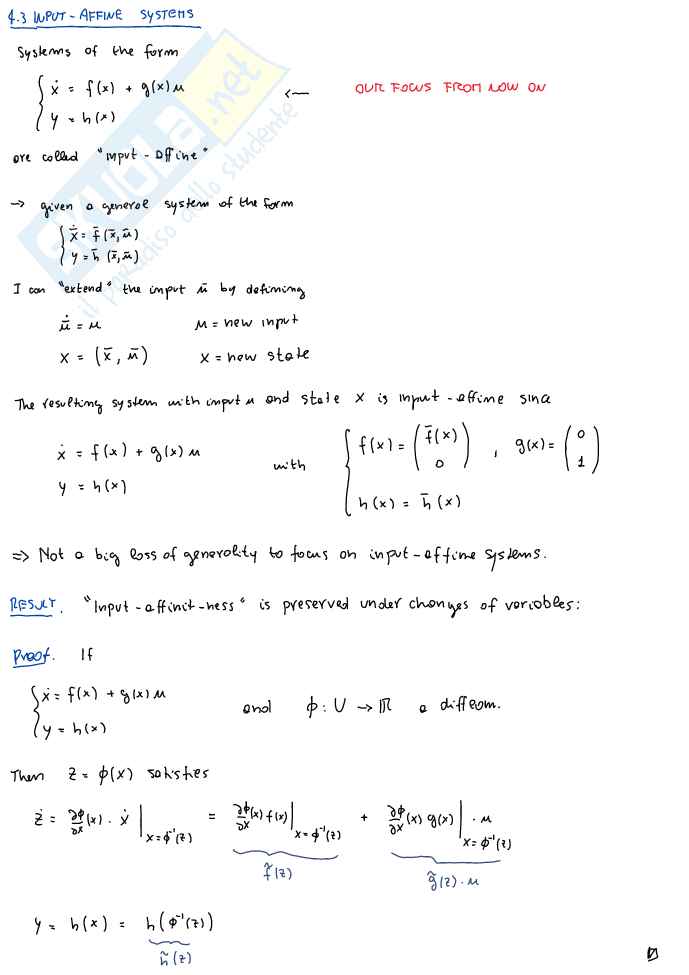 4.3 INPUT-AFFINE SYSTEMS
Systems of the form
ẋ = f(x) + g(x)u <— OUR FOCUS FROM NOW ON
y = h(x)
are called "input-affine"
→ given a general system of the form
ẋ̄ = f̄(x̄,ū)
y = h̄(x̄,ū)
I can "extend" the input ū by defining
ū̇ = u u = new input
x = (x̄, ū) x = new state
The resulting system with input u and state x is input-affine since
ẋ = f(x) + g(x)u with f(x) = (f̄(x) 0), g(x) = (0 1)
y = h(x) h(x) = h̄(x)
=> Not a big loss of generality to focus on input-affine systems.
RESULT. "Input-affinit-ness" is preserved under changes of variables:
Proof. If
ẋ = f(x) + g(x)u and φ: U → ℝ a diffeom.
y = h(x)
Then z = φ(x) satisfies
ż = ∂φ/∂x(x) · ẋ |x=φ⁻¹(z) = ∂φ/∂x(x) f(x) |x=φ⁻¹(z) + ∂φ/∂x(x) g(x) |x=φ⁻¹(z) · u
f̃(z) g̃(z)·u
y = h(x) = h(φ⁻¹(z))
h̃(z)
SKUOLA.net
il paradiso dello studente